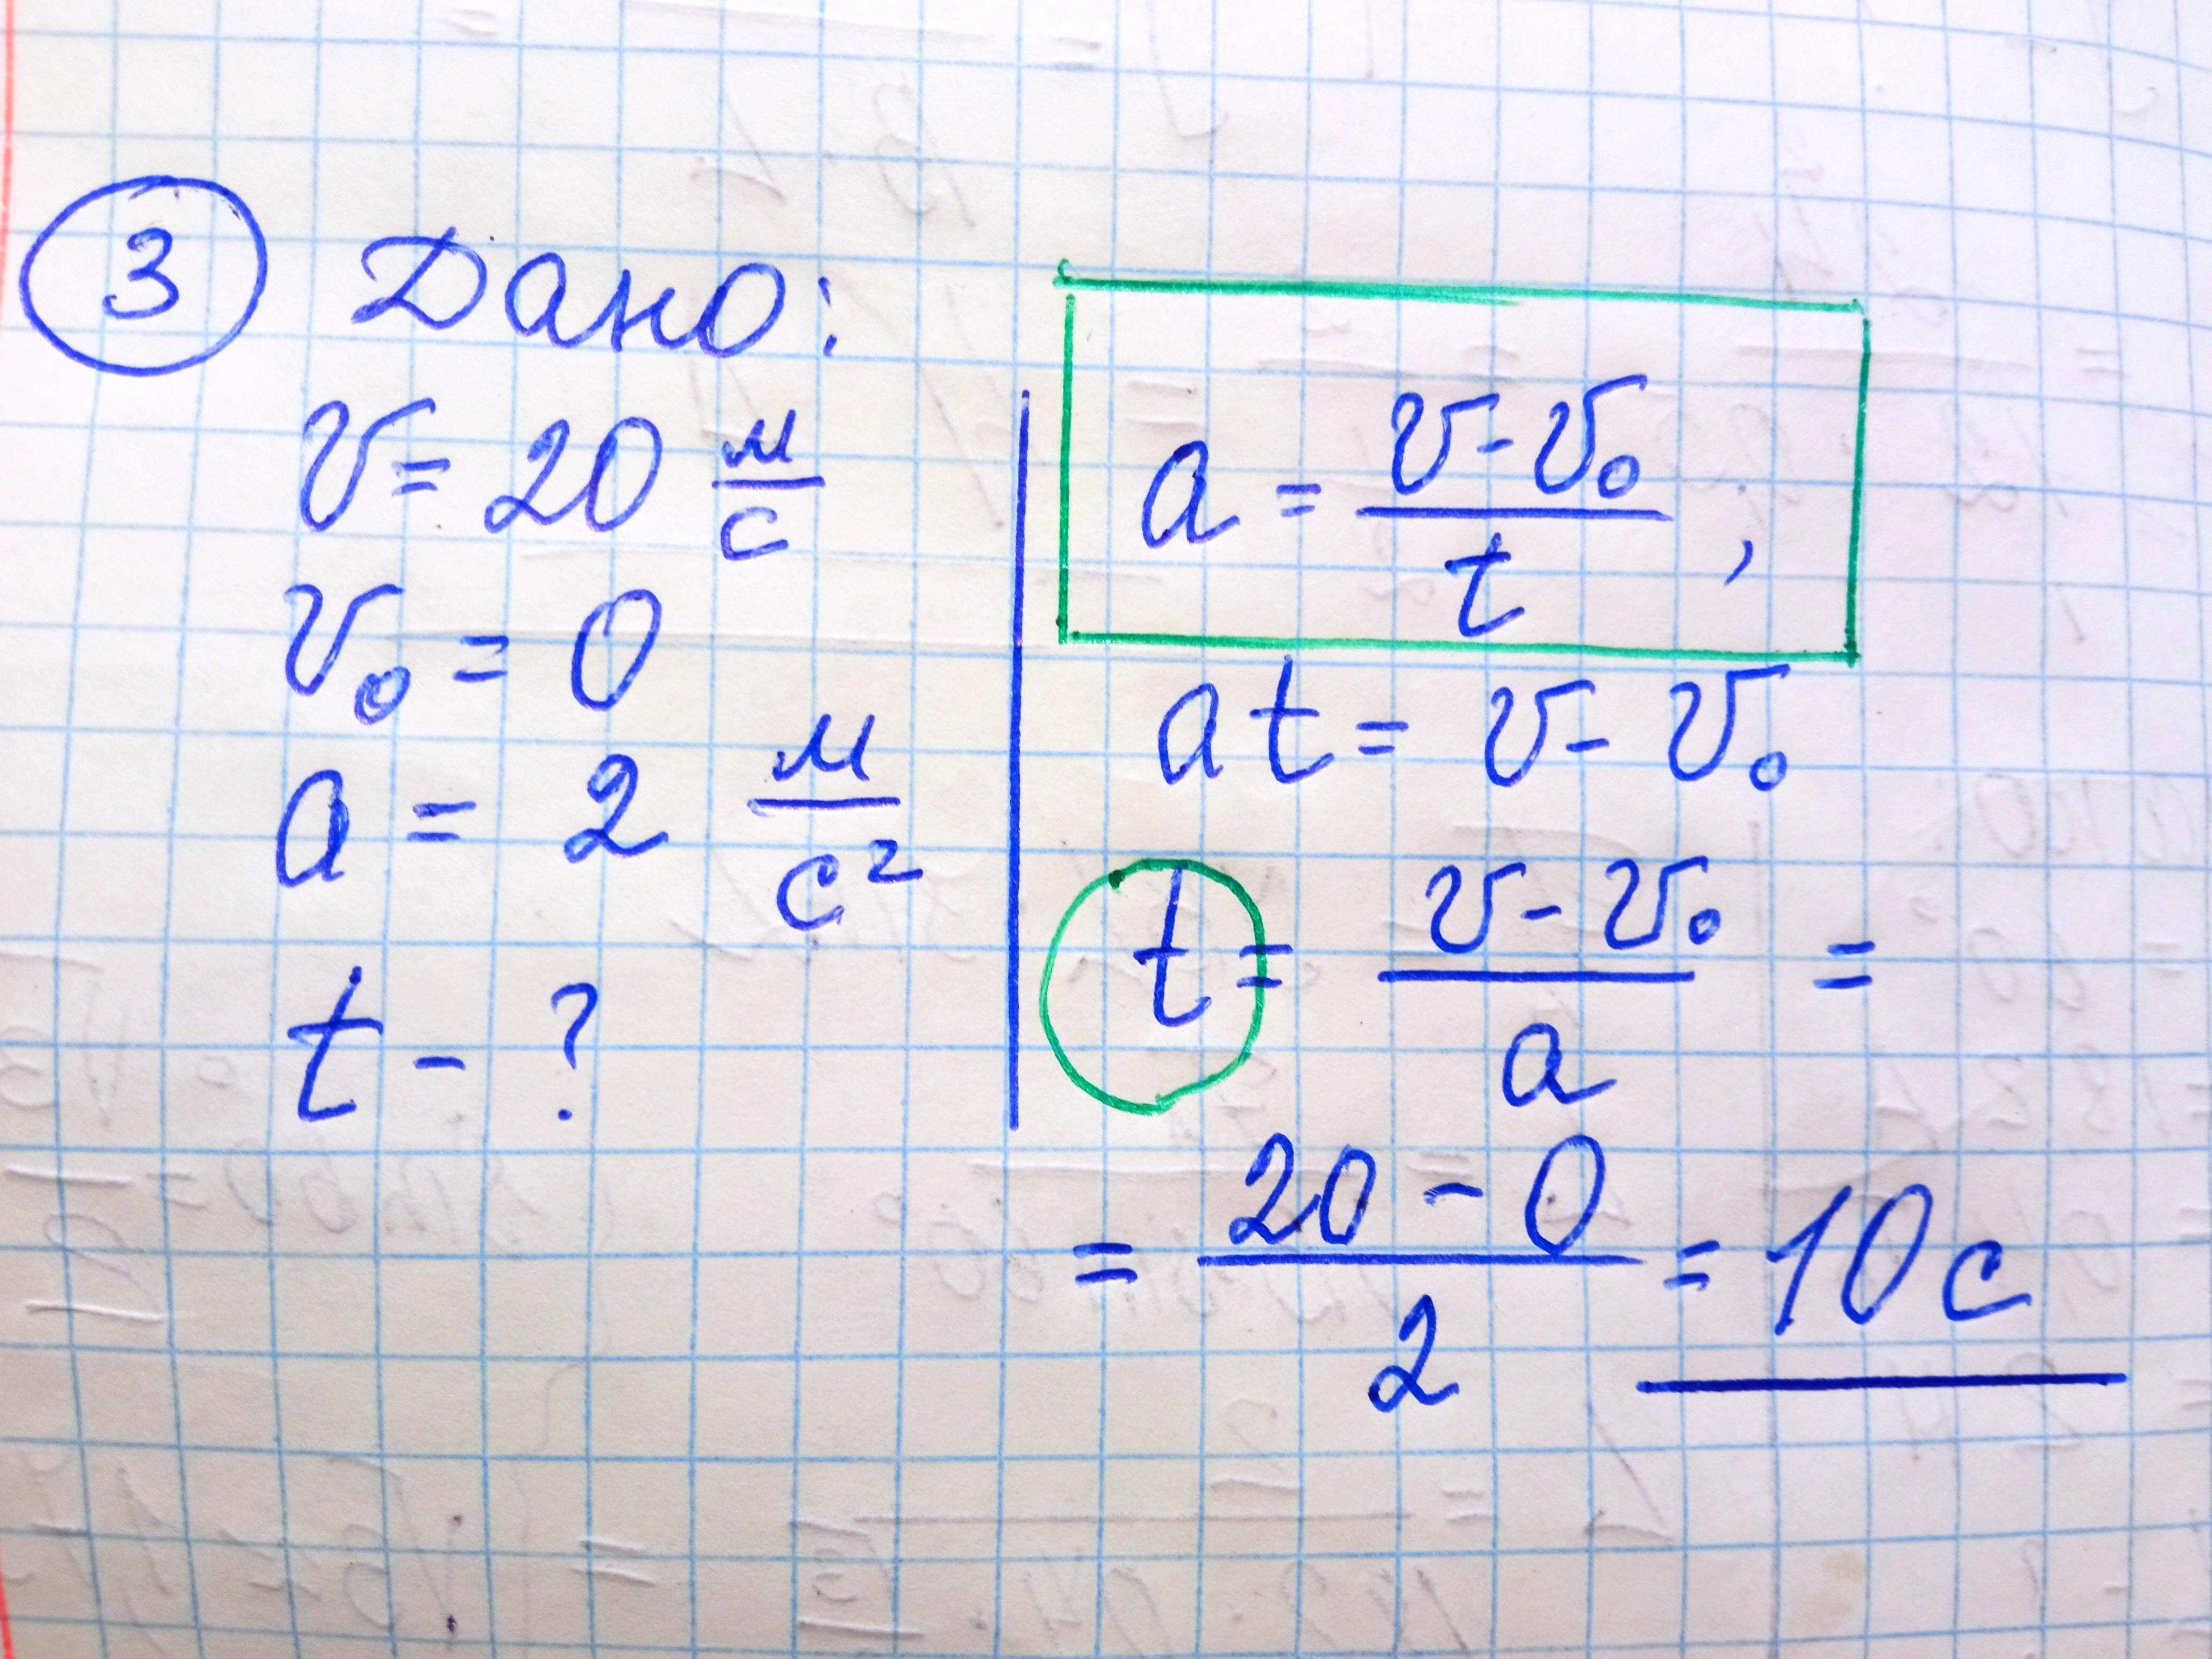 ③ Дано:
v = 20 м/с
v₀ = 0
a = 2 м/с²
t - ?
a = (v - v₀)/t ;
at = v - v₀
t = (v - v₀)/a =
= (20 - 0)/2 = 10 с